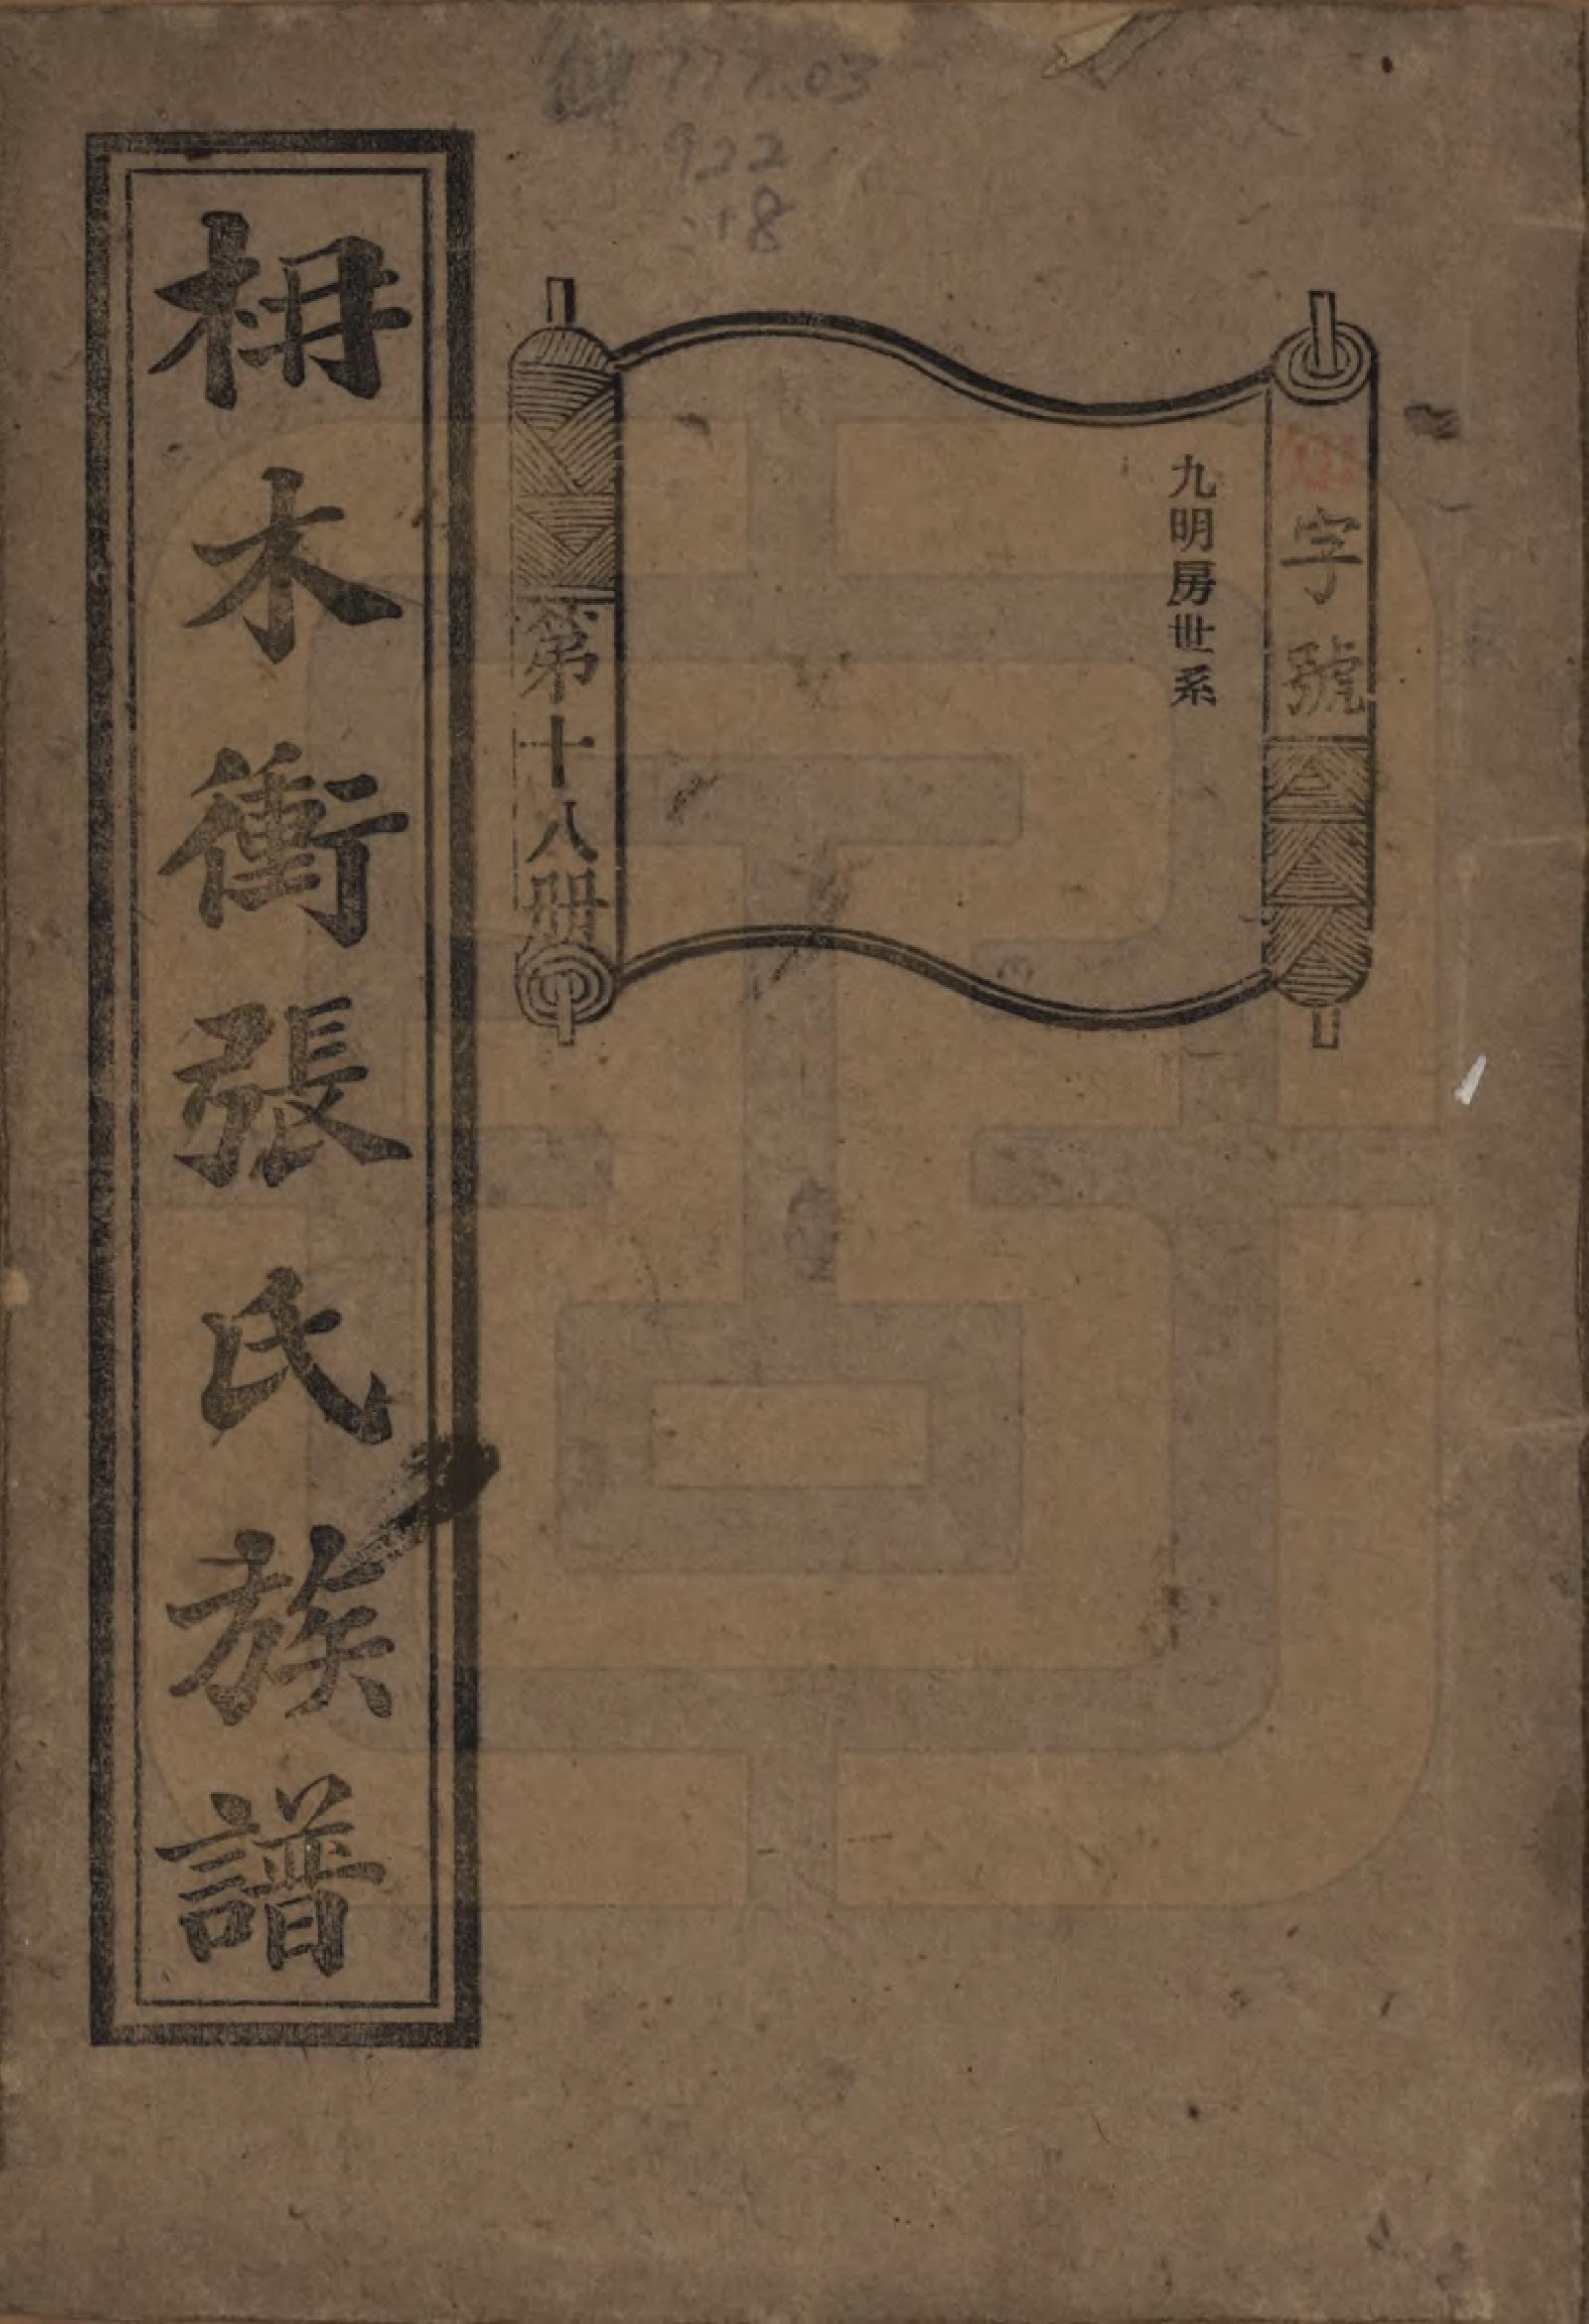 777.03
922
:18
知字號
九明房世系
第十八册
枏木衝張氏族譜